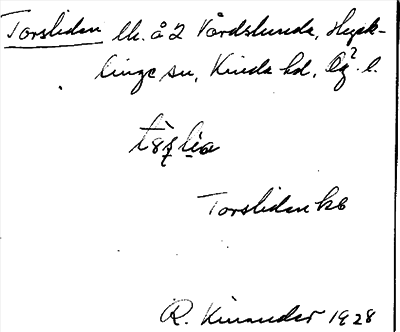 Torsliden lh. å 2 Vårdslunda, Hyck-
linge sn, Kinda hd, Ög. l.
Torsliden kb
R. Kinander 1928